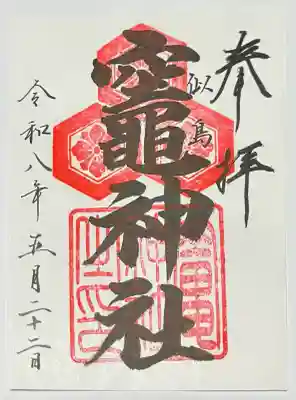 奉拝
似島
竈神社
令和八年五月二十二日